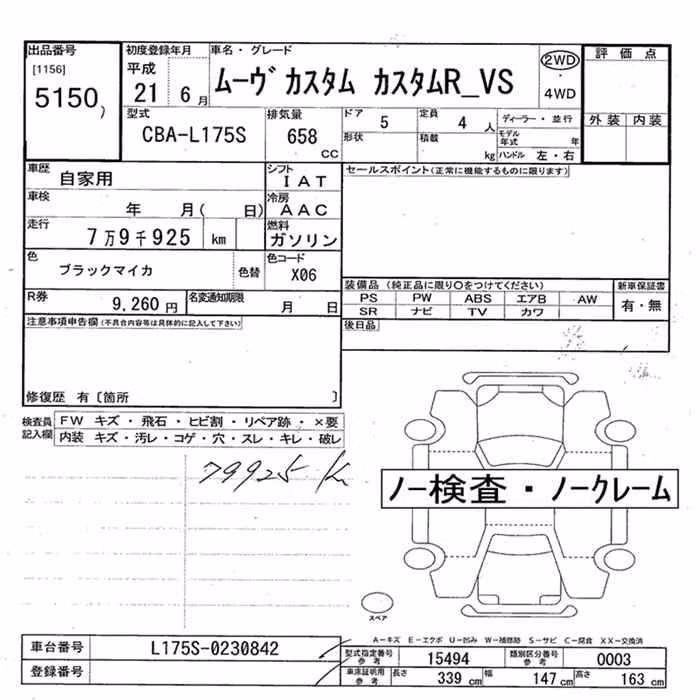 出品番号
[1156]
5150 )
初度登録年月
平成
21 6 月
車名・グレード
ムーヴ カスタム カスタムR_VS
2WD
・
4WD
評価点
外装 内装
型式
CBA-L175S
排気量
658
CC
ドア
5
定員
4 人
ディーラー・並行
形状
積載
kg
モデル年式 年
ハンドル 左・右
車歴
自家用
シフト
IAT
セールスポイント(正常に機能するものに限ります)
車検
年 月( 日)
冷房
AAC
走行
7万9千925 km
燃料
ガソリン
色
ブラックマイカ
色替
色コード
X06
装備品 (純正品に限り○をつけてください)
新車保証書
PS PW ABS エアB AW
SR ナビ TV カワ
有・無
R券
9,260 円
名変通知期限
月 日
後日品
注意事項申告欄(不具合内容等は具体的に記入して下さい)
修復歴 有〔箇所 〕
検査員記入欄
FW キズ・飛石・ヒビ割・リペア跡・×要
内装 キズ・汚レ・コゲ・穴・スレ・キレ・破レ
79925 K
ノー検査・ノークレーム
スペア
A−キズ E−エクボ U−凹み W−補修跡 S−サビ C−腐食 XX−交換済
車台番号
L175S-0230842
登録番号
型式指定番号
参考
15494
類別区分番号
参考
0003
車庫証明用
参考
長さ
339 cm
幅
147 cm
高さ
163 cm